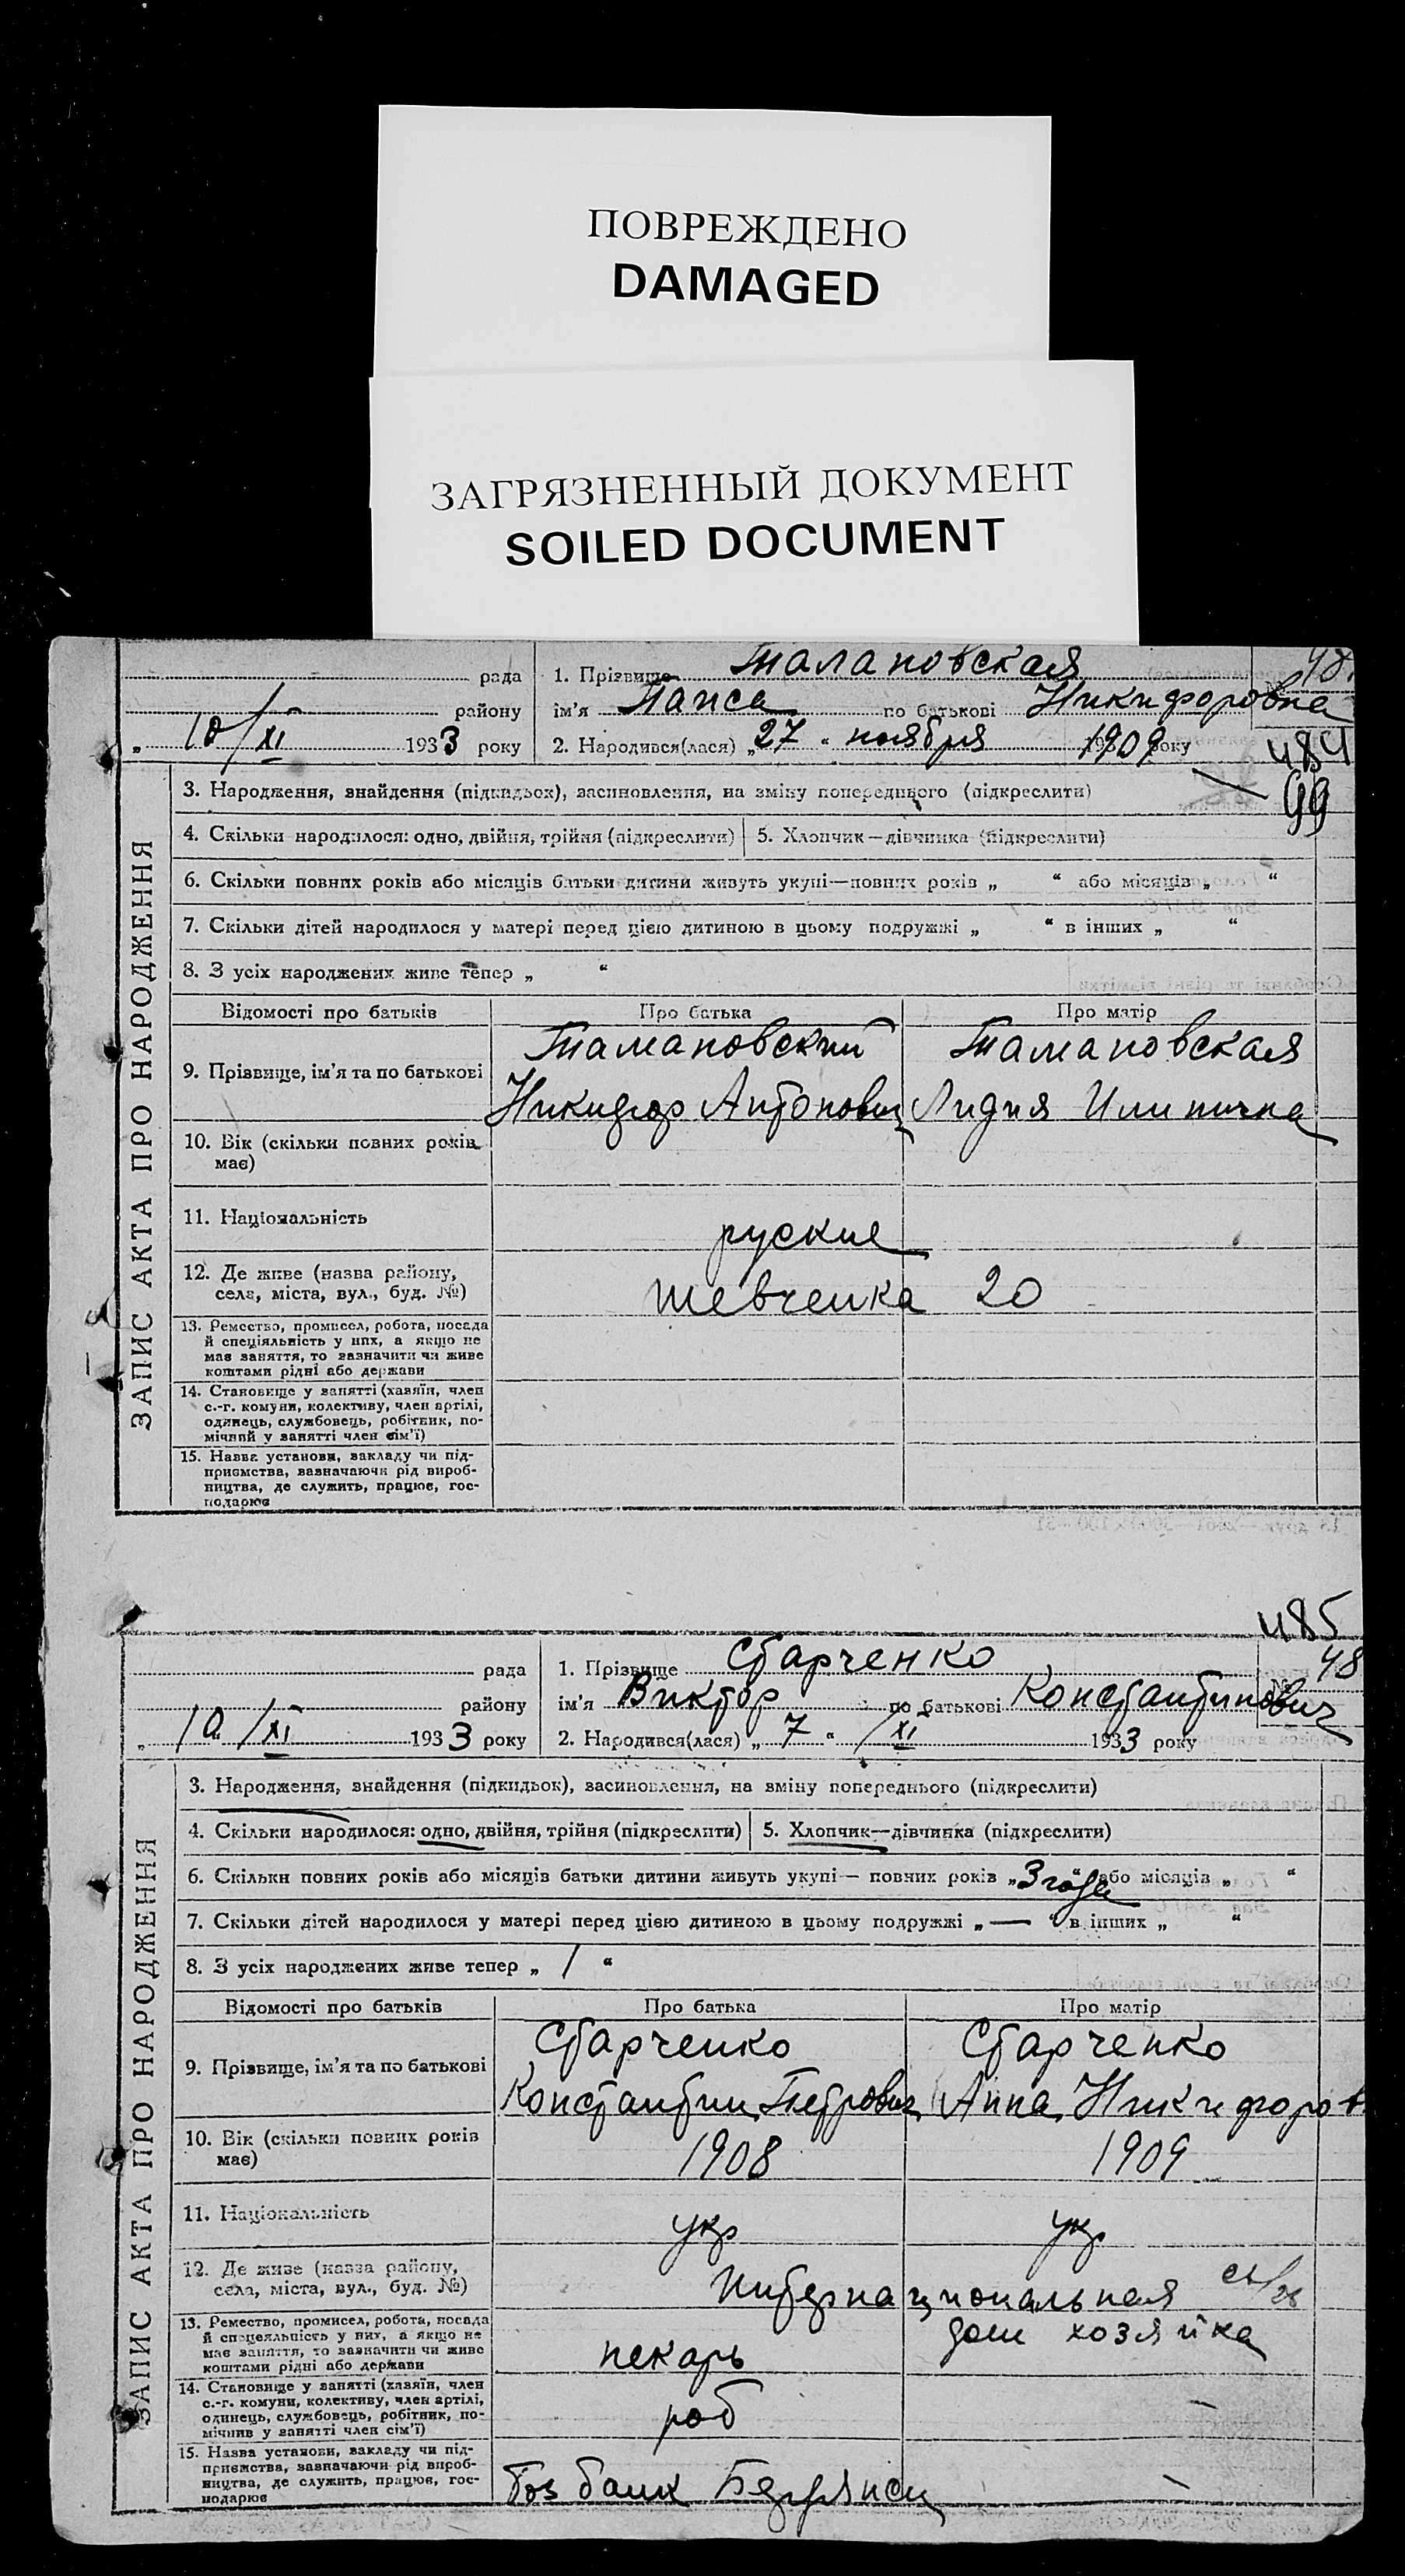 ПОВРЕЖДЕНО
DAMAGED
ЗАГРЯЗНЕННЫЙ ДОКУМЕНТ
SOILED DOCUMENT
рада
району
„ 10/XI 1933 року
1. Прізвище Талановская
ім'я Таиса по батькові Никифоровна
2. Народився(лася) „ 27 “ ноября 1909 року
484
99
ЗАПИС АКТА ПРО НАРОДЖЕННЯ
3. Народження, знайдення (підкидьок), засиновлення, на зміну попереднього (підкреслити)
4. Скільки народилося: одно, двійня, трійня (підкреслити)
5. Хлопчик—дівчинка (підкреслити)
6. Скільки повних років або місяців батьки дитини живуть укупі—повних років „ “ або місяців „ “
7. Скільки дітей народилося у матері перед цією дитиною в цьому подружжі „ “ в інших „ “
8. З усіх народжених живе тепер „ “
Відомості про батьків
Про батька
Про матір
9. Прізвище, ім'я та по батькові
Тамановский
Никифор Антонович
Тамановская
Лидия Илинична
10. Вік (скільки повних років
має)
11. Національність
руские
12. Де живе (назва району,
села, міста, вул., буд. №)
Шевченка 20
13. Ремество, промисел, робота, посада
й спеціяльність у них, а якщо не
має заняття, то зазначити чи живе
коштами рідні або держави
14. Становище у занятті (хазяїн, член
с.-г. комуни, колективу, член артілі,
одинець, службовець, робітник, по-
мічний у занятті член сім'ї)
15. Назва установи, закладу чи під-
приємства, зазначаючи рід вироб-
ництва, де служить, працює, гос-
подарює
485
48
рада
району
„ 10/XI 1933 року
1. Прізвище Старченко
ім'я Виктор по батькові Константинович
2. Народився(лася) „ 7 “ /XI 1933 року
ЗАПИС АКТА ПРО НАРОДЖЕННЯ
3. Народження, знайдення (підкидьок), засиновлення, на зміну попереднього (підкреслити)
4. Скільки народилося: одно, двійня, трійня (підкреслити)
5. Хлопчик—дівчинка (підкреслити)
6. Скільки повних років або місяців батьки дитини живуть укупі— повних років „ 3 года “ або місяців „ “
7. Скільки дітей народилося у матері перед цією дитиною в цьому подружжі „ — “ в інших „ “
8. З усіх народжених живе тепер „ 1 “
Відомості про батьків
Про батька
Про матір
9. Прізвище, ім'я та по батькові
Старченко
Константин Петрович
Старченко
Анна Никифоров
10. Вік (скільки повних років
має)
1908
1909
11. Національність
укр
укр
12. Де живе (назва району,
села, міста, вул., буд. №)
Интернациональная
13. Ремество, промисел, робота, посада
й спецеяльність у них, а якщо не
має заняття, то зазначити чи живе
коштами рідні або держави
пекарь
дом хозяйка
14. Становище у занятті (хазяїн, член
с.-г. комуни, колективу, член артілі,
одинець, службовець, робітник, по-
мічнив у занятті член сім'ї)
роб
—
15. Назва установи, закладу чи під-
приємства, зазначаючи рід вироб-
ництва, де служить, працює, гос-
подарює
—